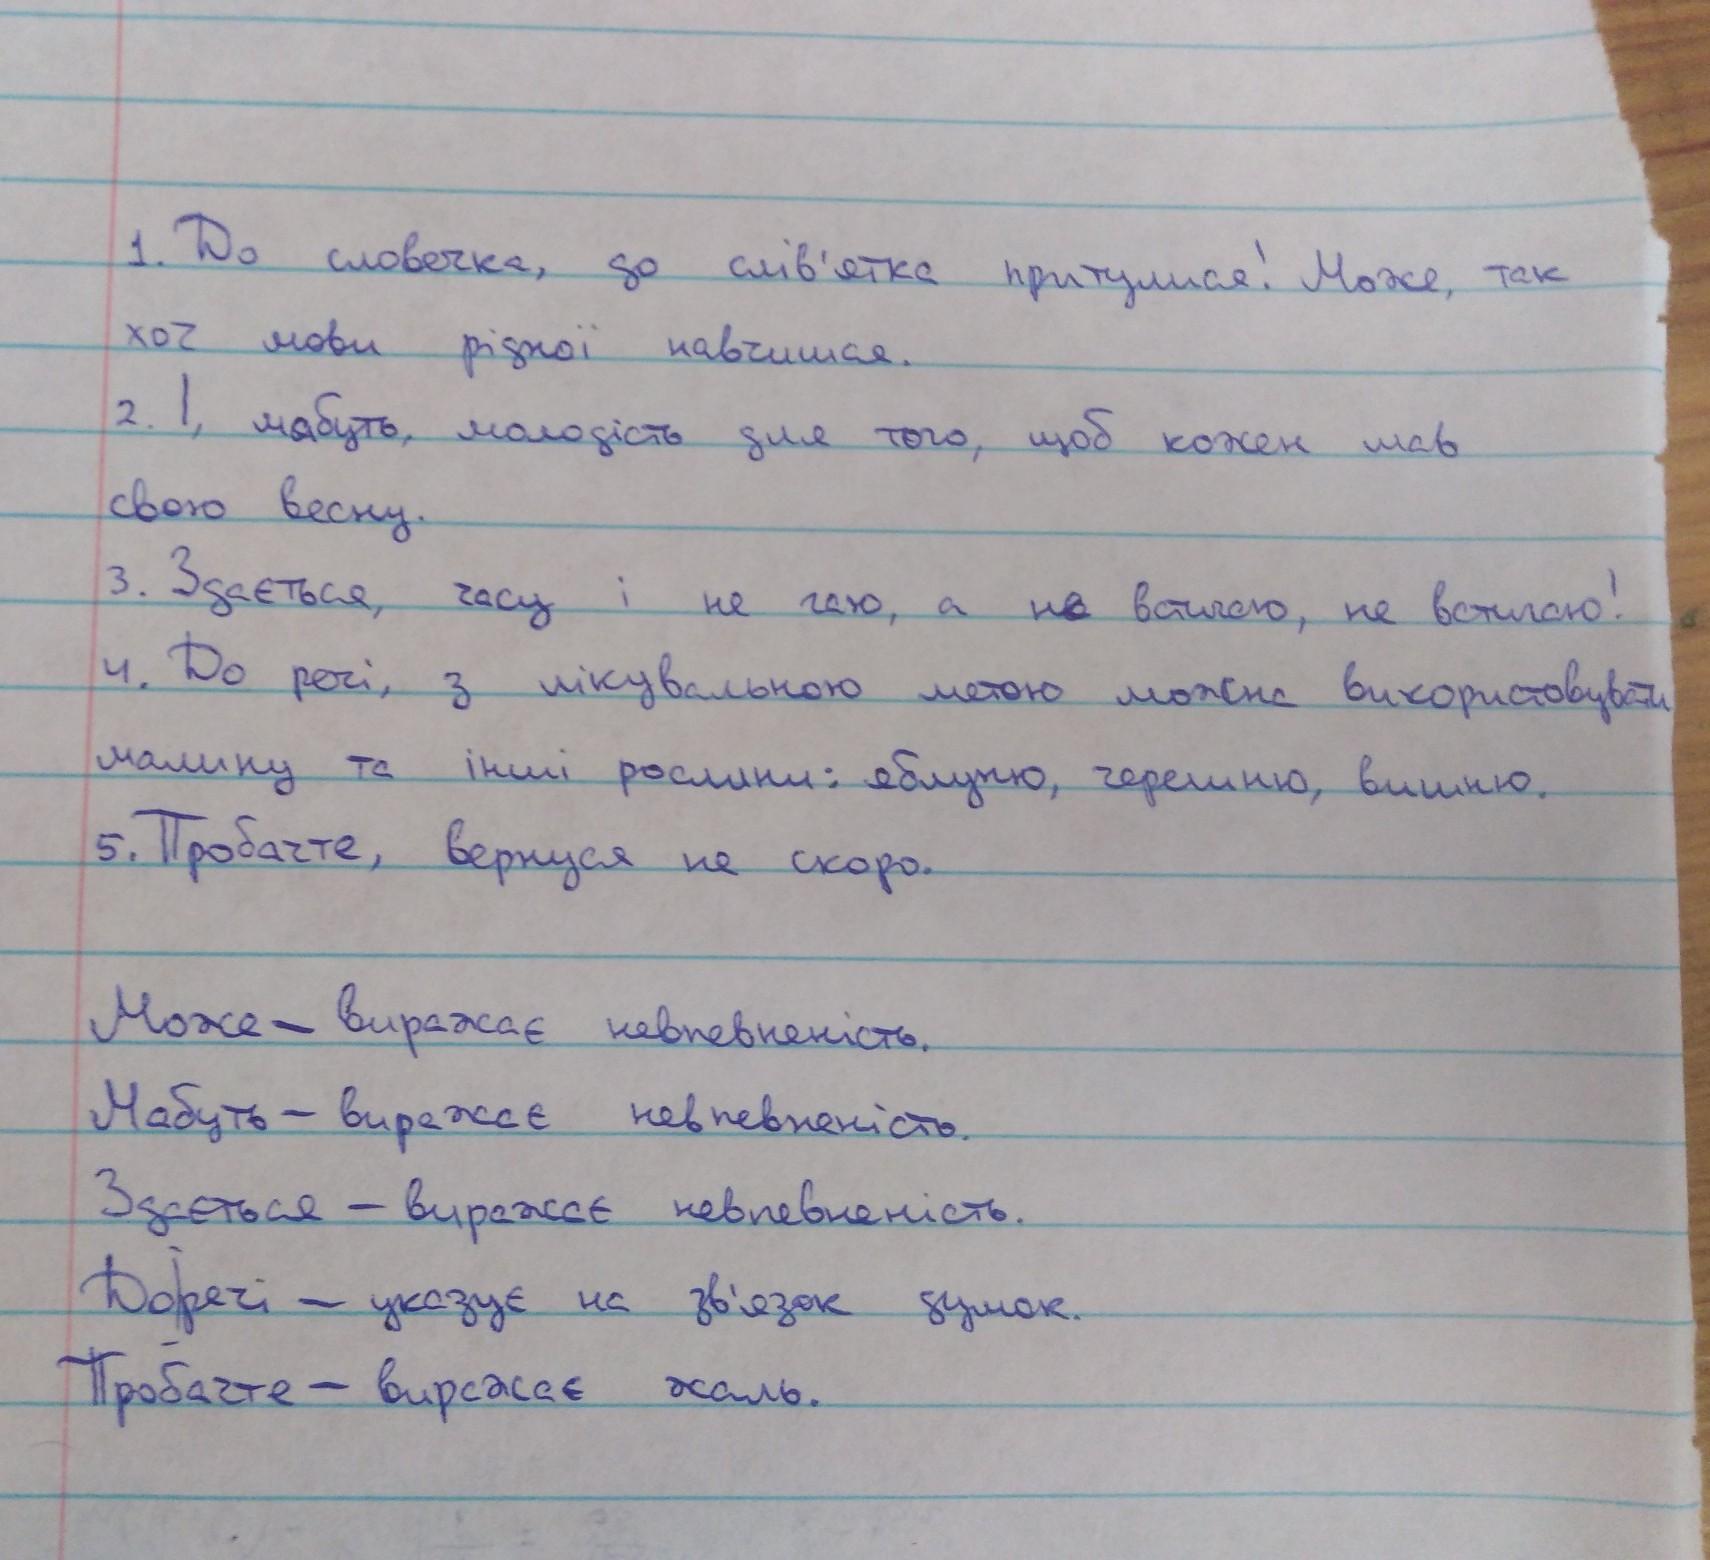 1. До словечка, до слів'ятка притулися! Може, так
хоч мови рідної навчишся.
2. І, мабуть, молодість для того, щоб кожен мав
свою весну.
3. Здається, часу і не гаю, а не встигаю, не встигаю!
4. До речі, з лікувальною метою можна використовувати
малину та інші рослини: яблуню, черешню, вишню.
5. Пробачте, вернуся не скоро.
Може – виражає невпевненість.
Мабуть – виражає невпевненість.
Здається – виражає невпевненість.
До|речі – указує на зв'язок думок.
Пробачте – виражає жаль.